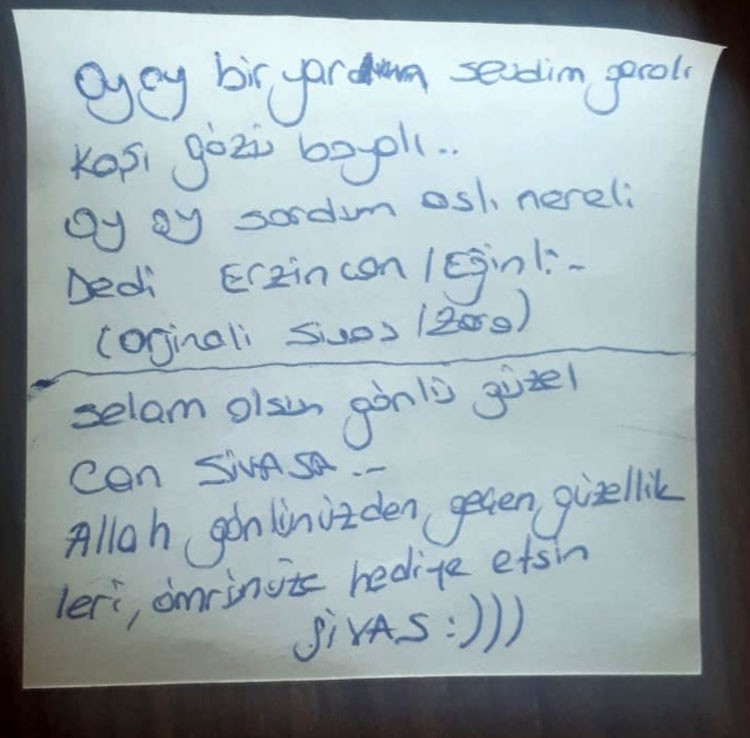 oy oy bir yar sevdim yaralı
Kaşı gözü boyalı..
oy oy sordum aslı nereli
Dedi Erzincan / Eğinli..
(orjinali Sivas / Zara)
selam olsun gönlü güzel
Can SİVASA..
Allah gönlünüzden, geçen, güzellik
leri, ömrünüze hediye etsin
SİVAS :)))